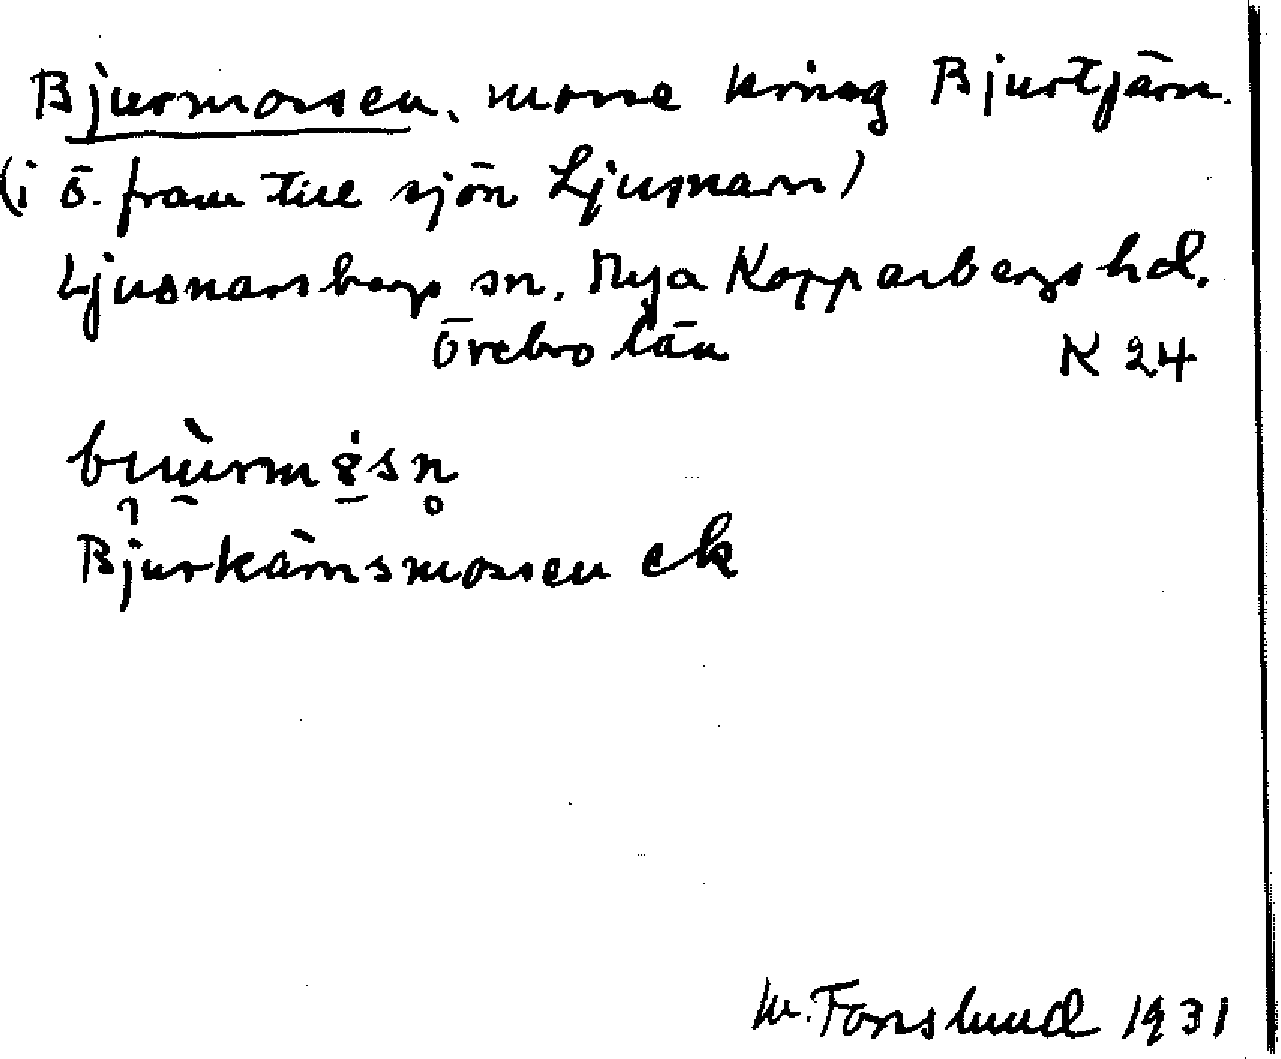 Bjurmossen, mosse kring Bjurtjärn.
(i ö. fram till sjön Ljusnaren)
Ljusnarsbergs sn. Nya Kopparbergs hd.
Örebro län K 24
Bjurkärnsmossen ek
Forslund 1931